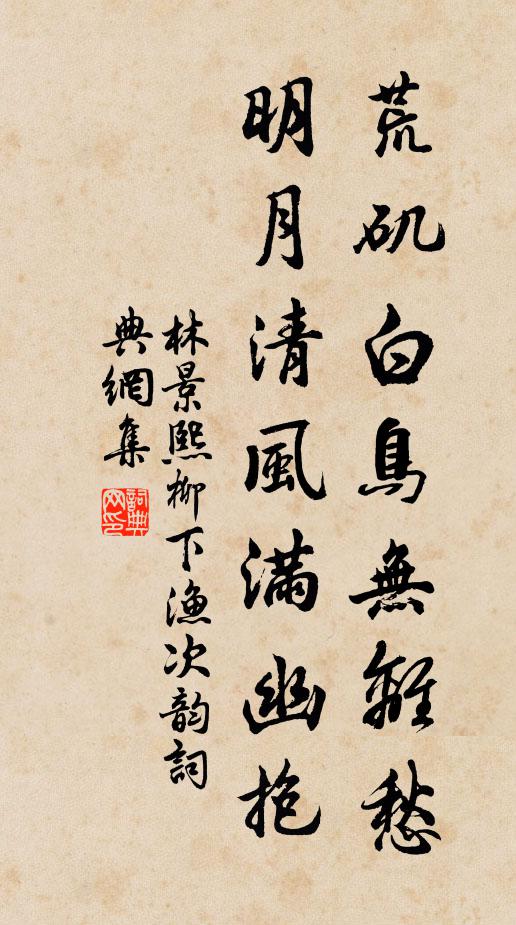 荒矶白鳥無離愁
明月清風滿幽抱
林景熙柳下漁次韵詞
典網集
詞典網印